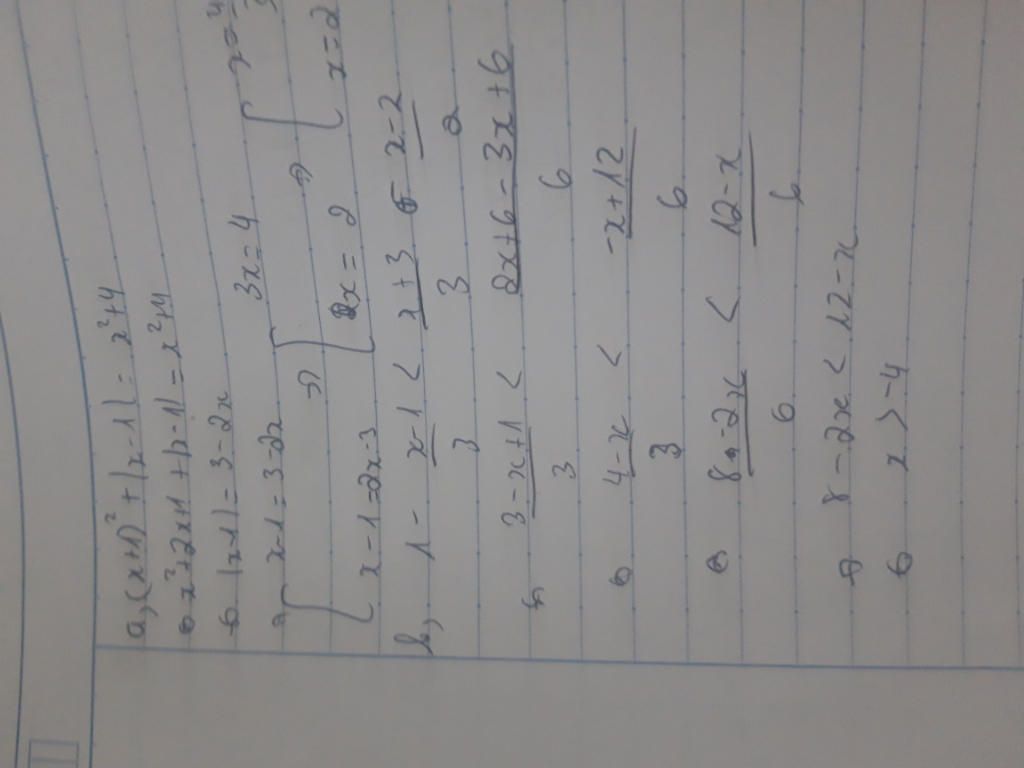 a, (x+1)² + |x-1| = x²+4
⇔ x²+2x+1 + |x-1| = x²+4
⇔ |x-1| = 3-2x
⇔ [ x-1 = 3-2x ⇒ [ 3x = 4 ⇒ [ x =
x-1 = 2x-3 2x = 2 x = 2
b, 1 - x-1/3 < x+3/3 - x-2/2
⇔ 3-x+1/3 < 2x+6-3x+6/6
⇔ 4-x/3 < -x+12/6
⇔ 8-2x/6 < 12-x/6
⇔ 8-2x < 12-x
⇔ x > -4